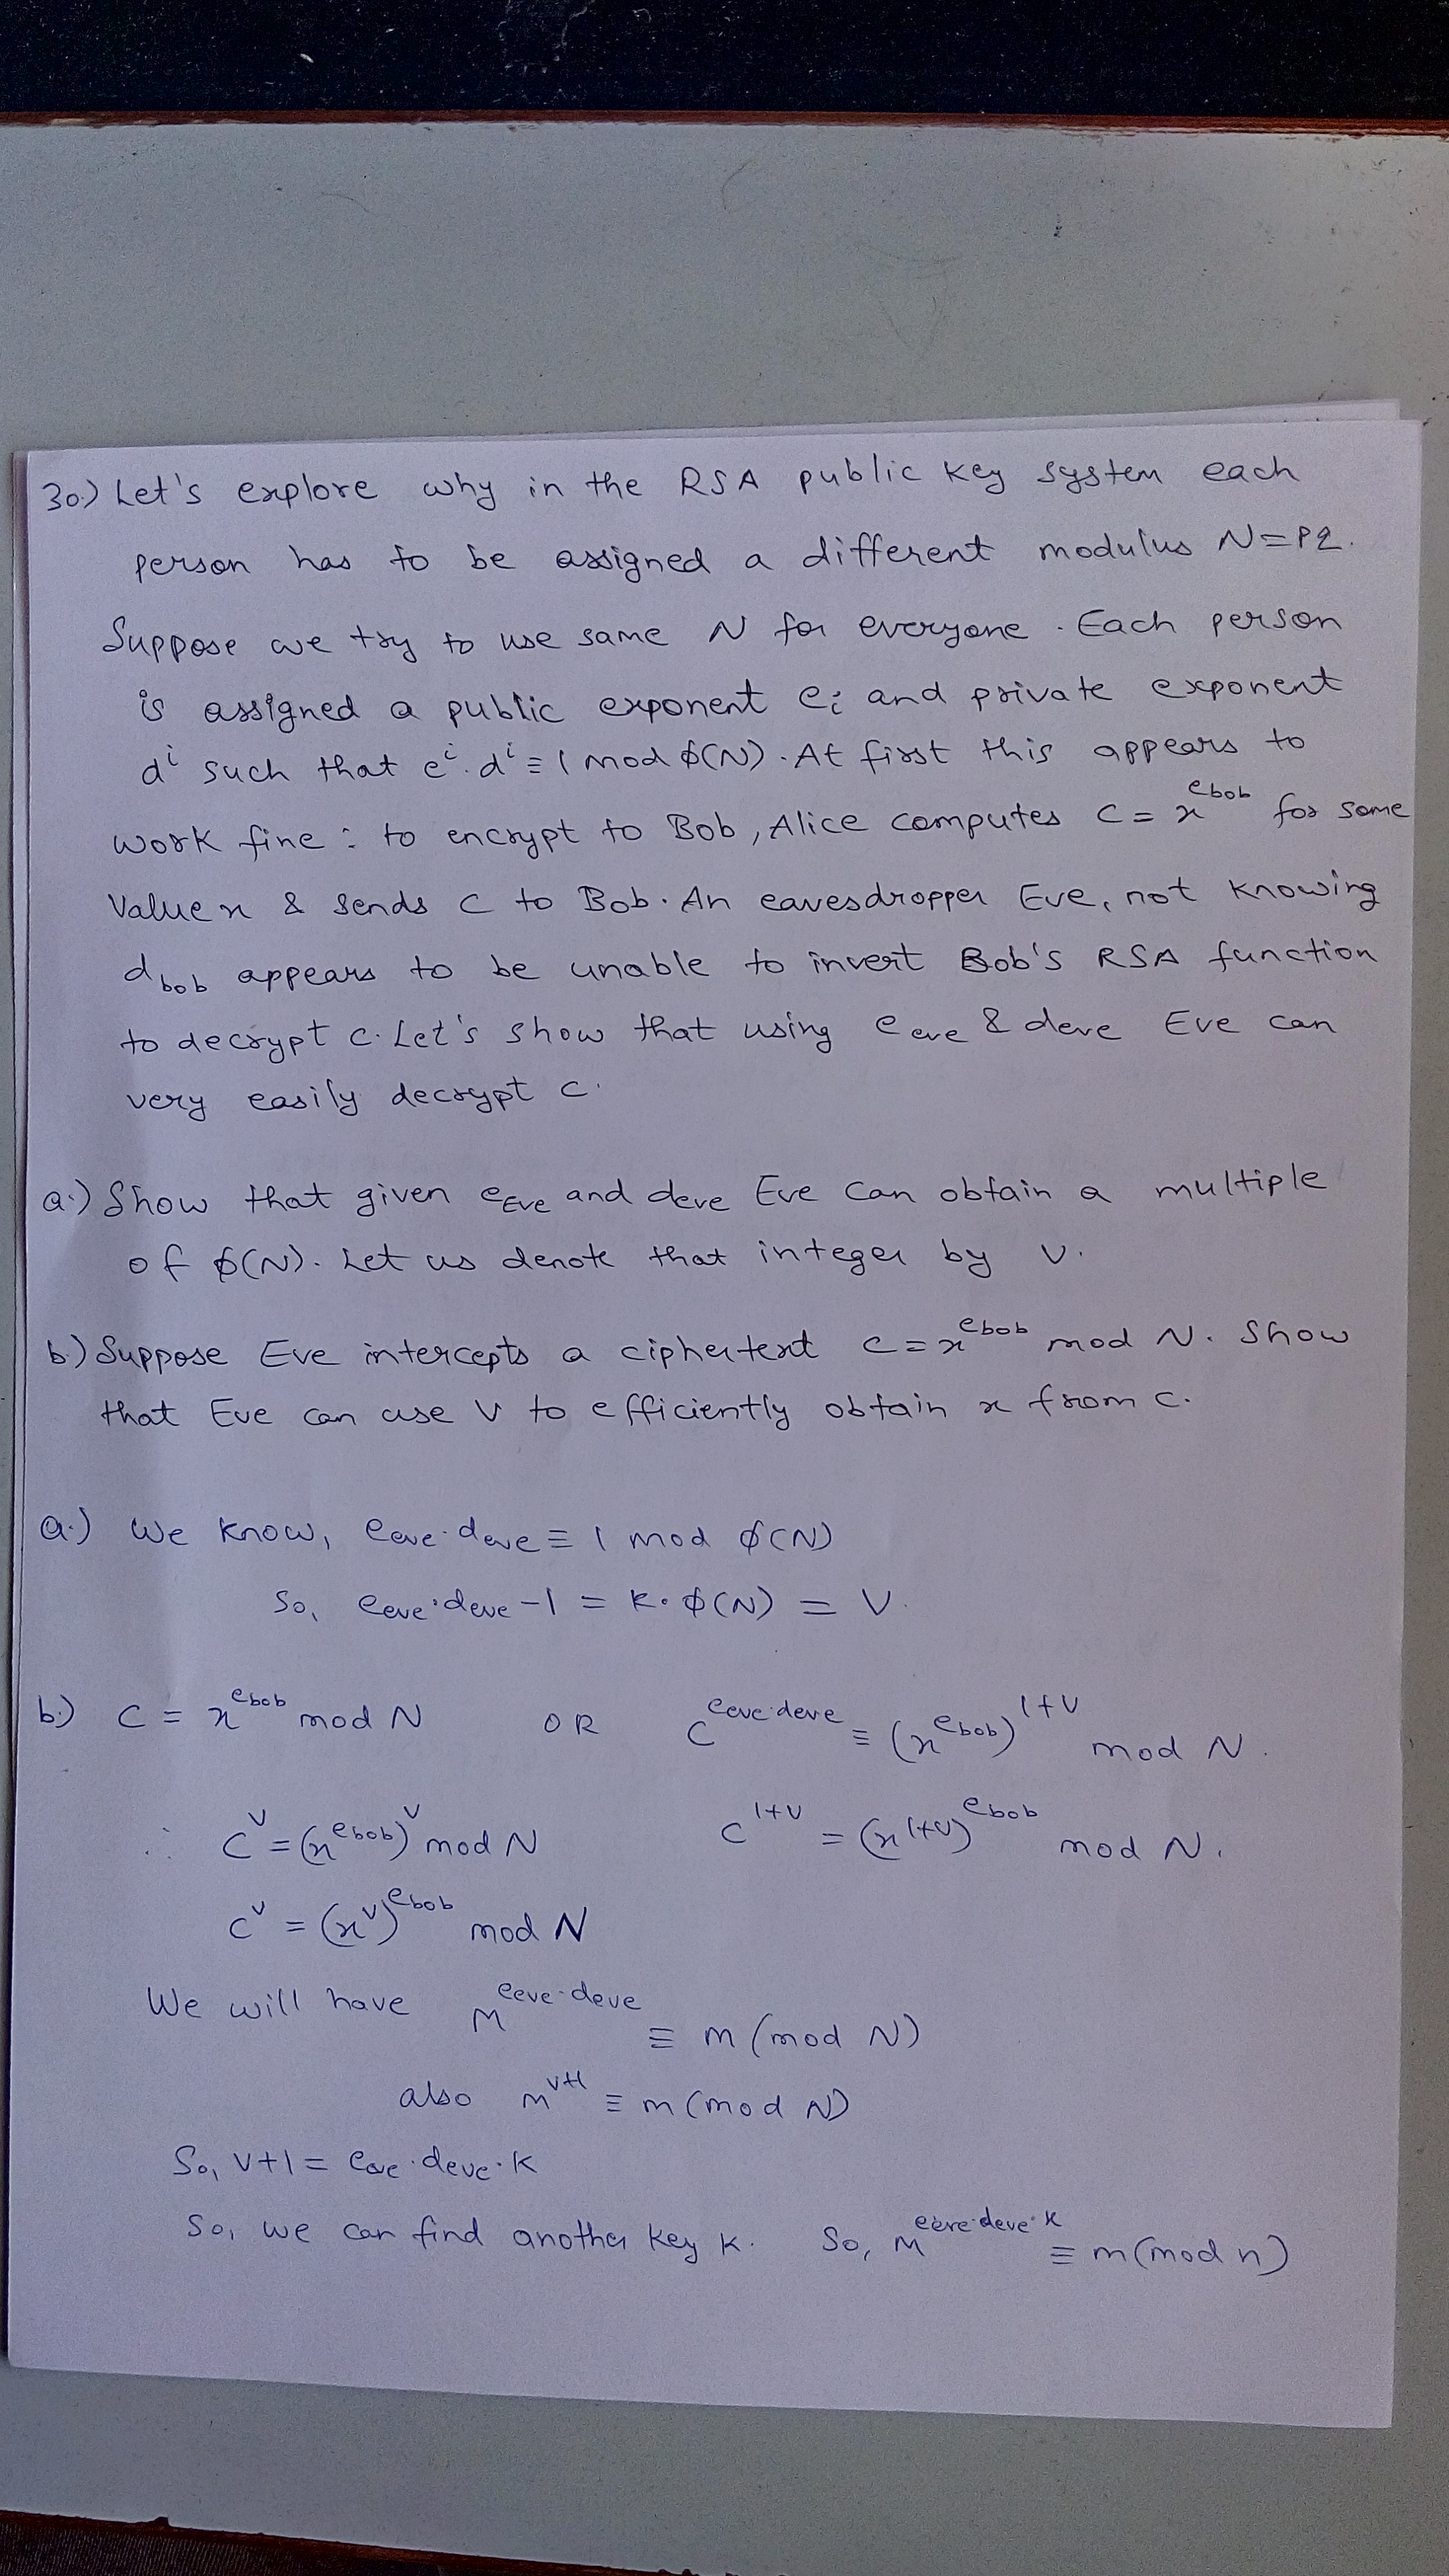 30.) Let's explore why in the RSA public key system each
person has to be assigned a different modulus N=pq.
Suppose we try to use same N for everyone. Each person
is assigned a public exponent eᵢ and private exponent
dⁱ such that eⁱ.dⁱ ≡ 1 mod φ(N). At first this appears to
work fine : to encrypt to Bob, Alice computes c = x^ebob for some
value x & sends c to Bob. An eavesdropper Eve, not knowing
d_bob appears to be unable to invert Bob's RSA function
to decrypt c. Let's show that using e_eve & deve Eve can
very easily decrypt c.
a.) Show that given e_Eve and deve Eve can obtain a multiple
of φ(N). Let us denote that integer by V.
b.) Suppose Eve intercepts a ciphertext c = x^ebob mod N. Show
that Eve can use V to efficiently obtain x from c.
a.) We know, eeve.deve ≡ 1 mod φ(N)
So, eeve.deve -1 = K.φ(N) = V.
b.) C = x^ebob mod N OR C^eeve.deve ≡ (x^ebob)^1+V mod N.
∴ C^V = (x^ebob)^V mod N C^1+V = (x^1+V)^ebob mod N.
C^V = (x^V)^ebob mod N
We will have M^eeve.deve ≡ m (mod N)
also m^V+1 ≡ m (mod N)
So, V+1 = eeve.deve.K
So, we can find another key K. So, M^eeve.deve.K ≡ m (mod n)